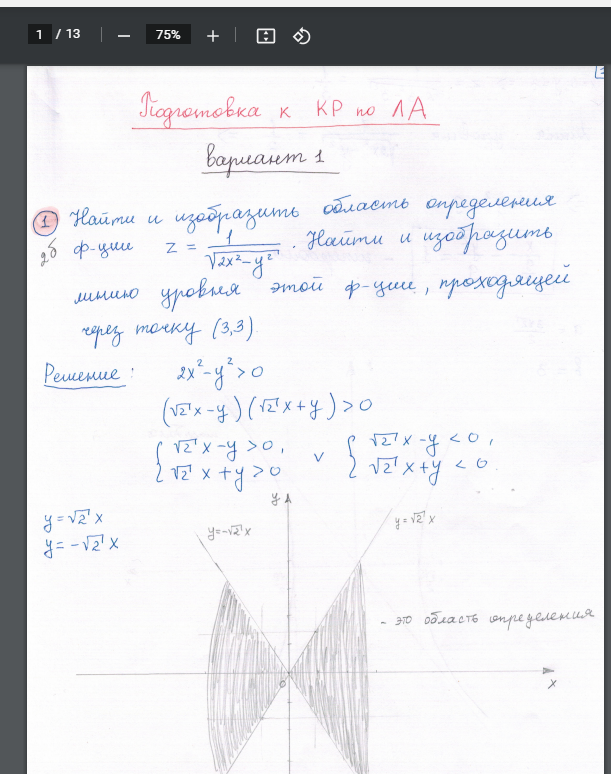 1 / 13 75%
Подготовка к КР по ЛА
вариант 1
1 Найти и изобразить область определения
2б ф-ции z = 1/√(2x²-y²). Найти и изобразить
линию уровня этой ф-ции, проходящей
через точку (3,3).
Решение: 2x²-y²>0
(√2 x-y)(√2 x+y)>0
{ √2 x-y>0, √2 x+y>0 v { √2 x-y<0, √2 x+y<0.
y=√2 x
y=-√2 x
y
y=-√2 x
y=√2 x
- это область определения
0
x